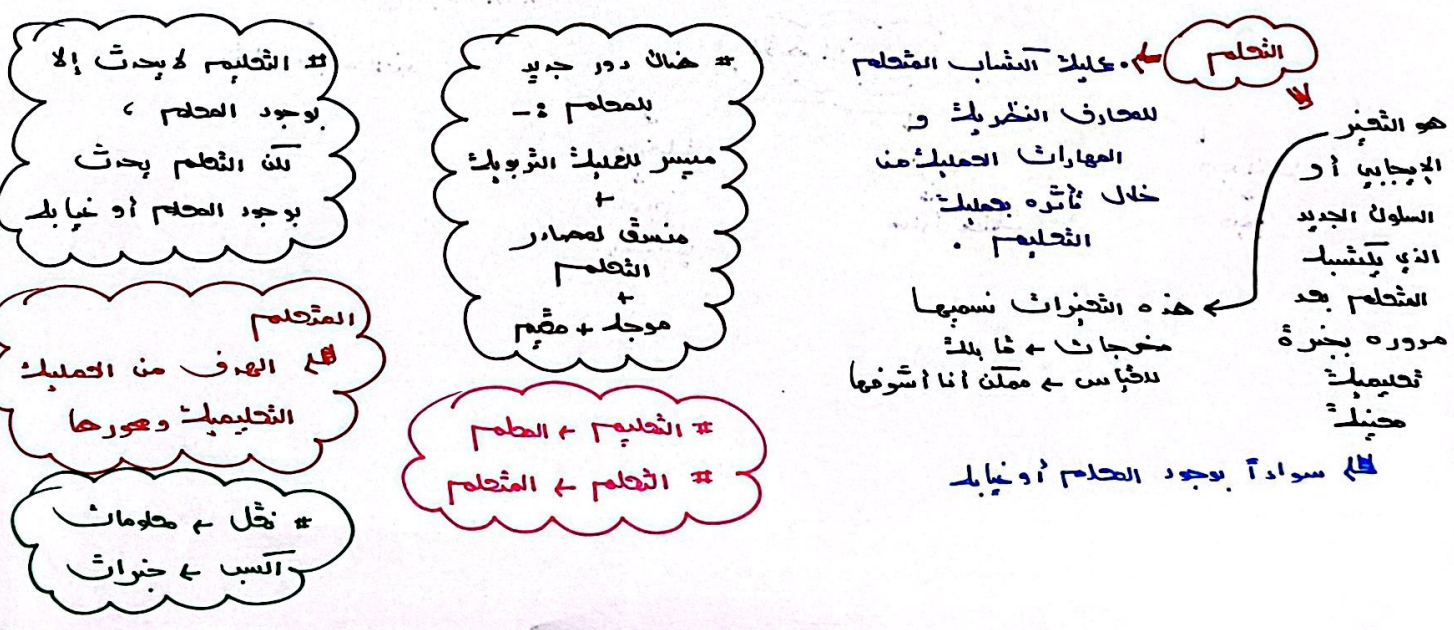 التعلم
عملية اكتساب المتعلم
للمعارف النظرية و
المهارات العملية من
خلال تأثره بعملية
التعليم .
هو التغير
الإيجابي أو
السلوك الجديد
الذي يكتسبه
المتعلم بعد
مروره بخبرة
تعليمية
معينة
هذه التغيرات نسميها
مخرجات ← قابلة
للقياس ← ممكن أنا أشوفها
سواءاً بوجود المعلم أو غيابه
# هناك دور جديد
للمعلم :-
ميسر للعملية التربوية
+
منسق لمصادر
التعلم
+
موجه + مقيم
# التعليم ← المعلم
# التعلم ← المتعلم
# التعليم لا يحدث إلا
بوجود المعلم ،
لكن التعلم يحدث
بوجود المعلم أو غيابه
المتعلم
الهدف من العملية
التعليمية ومحورها
# نقل ← معلومات
اكسب ← خبرات